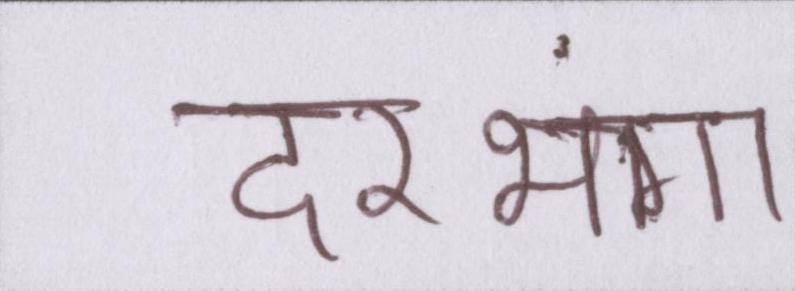 दरभंगा